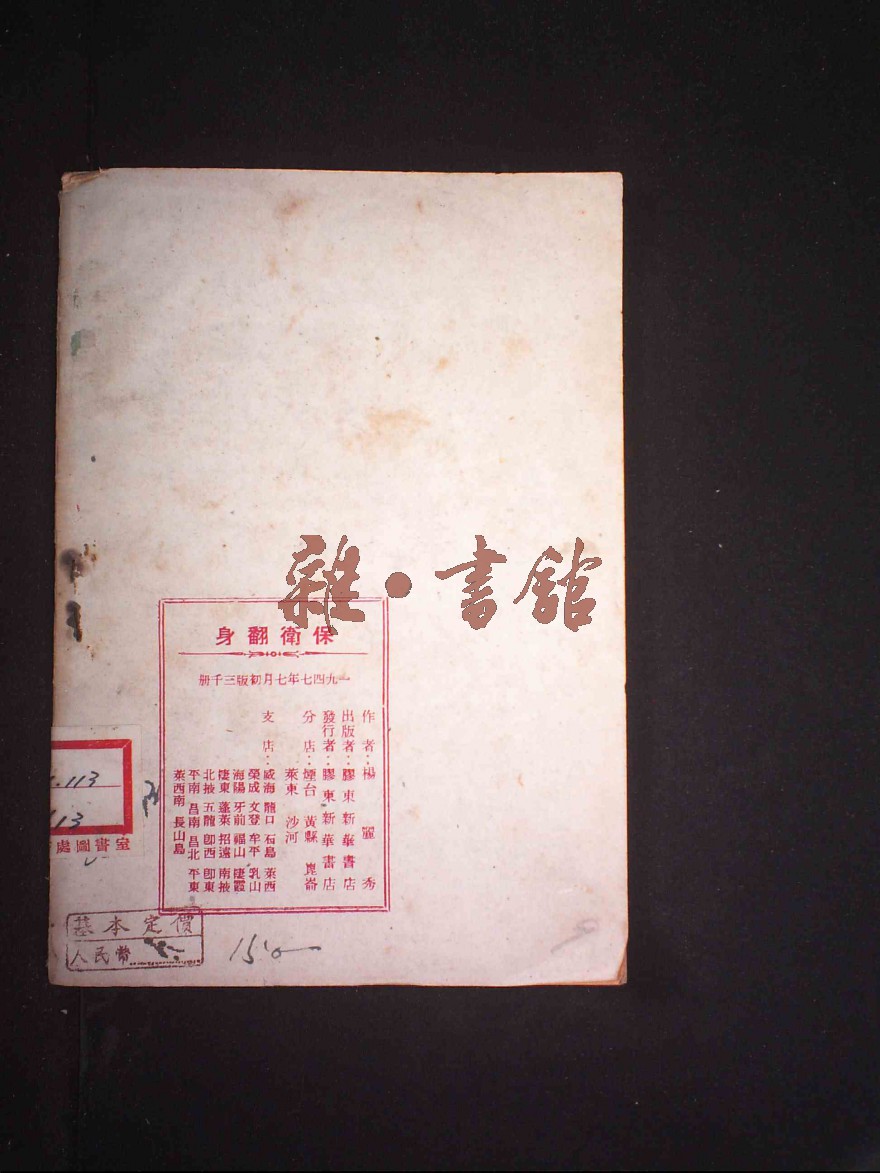 雜·書館
保衛翻身
一九四七年七月初版三千冊
作者：楊麗秀
出版者：膠東新華書店
發行者：膠東新華書店
分店：煙台 黃縣 崑崙
萊東 沙河
支店：威海 龍口 石島 萊西
榮成 文登 牟平 乳山
海陽 牙前 福山 棲霞
棲東 蓬萊 招遠 南掖
北掖 五龍 卽西 卽東
平南 昌南 昌北 平東
萊西南 長山島
113
113
處圖書室
基本定價
人民幣